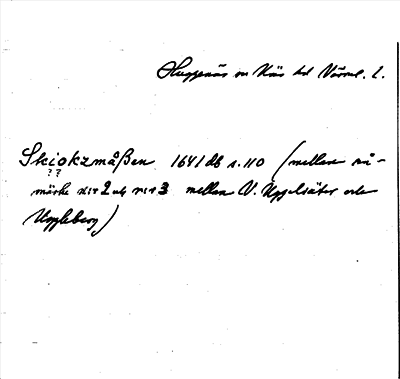 Huggenäs sn Näs hd Värml. l.
Skiokzmåßen 1641 db s. 110 (mellan rå-
??
märke nr 2 och nr 3 mellan V. Uggelsäter och
Uggleberg)